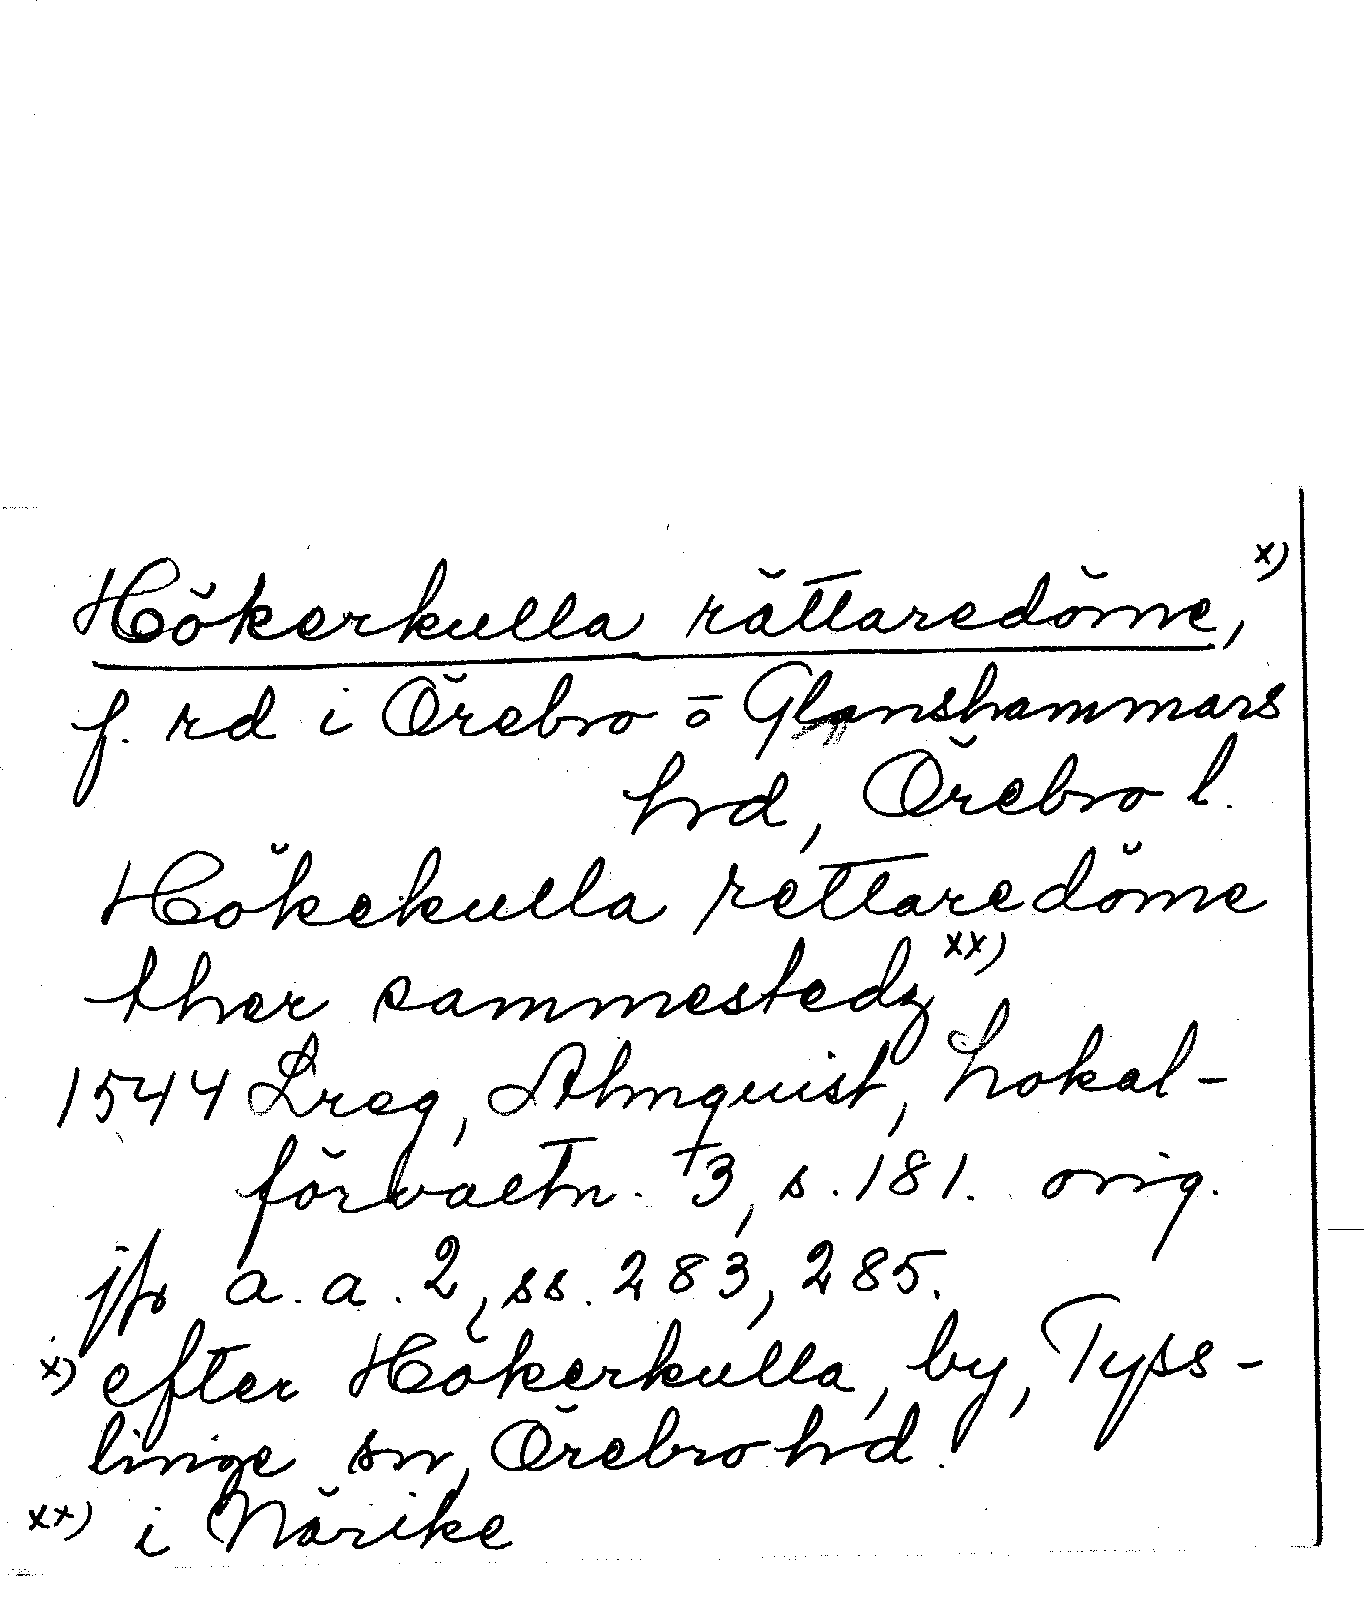 Hökerkulla rättaredöme, x)
f. rd i Örebro o Glanshammars
hrd, Örebro l.
Hökekulla rettaredöme
ther sammestedz xx)
1544 Lreg, Almquist, Lokal-
förvaltn. 3, s. 181. orig.
jfr a.a. 2, ss. 283, 285.
x) efter Hökerkulla, by, Tyss-
linge sn, Örebro hrd!
xx) i Närike